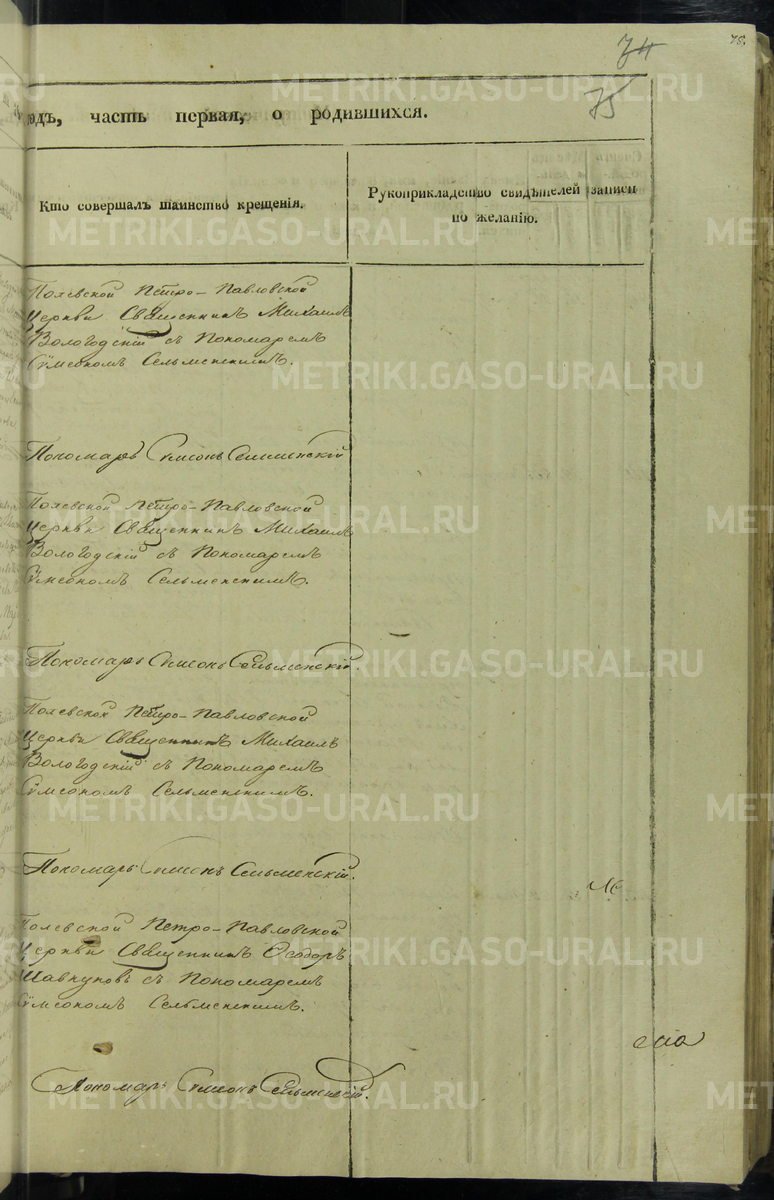 74
78.
75
одъ, часть первая, о родившихся.
Кто совершалъ таинство крещенія.
Рукоприкладство свидѣтелей записи
по желанію.
Полевской Петро-Павловской
Церкви Священникъ Михаилъ
Вологодскій съ Пономаремъ
Сѵмеономъ Сельменскимъ.
Пономарь Симеонъ Сельменскій
Полевской Петро-Павловской
Церкви Священникъ Михаилъ
Вологодскій съ Пономаремъ
Сѵмеономъ Сельменскимъ.
Пономарь Симеонъ Сельменскій.
Полевской Петро-Павловской
Церкви Священникъ Михаилъ
Вологодскій съ Пономаремъ
Сѵмеономъ Сельменскимъ.
Пономарь Симеонъ Сельменскій.
Полевской Петро-Павловской
Церкви Священникъ Ѳеодоръ
съ Пономаремъ
Сѵмеономъ Сельменскимъ.
Пономарь Симеонъ Сельменскій.
METRIKI.GASO-URAL.RU